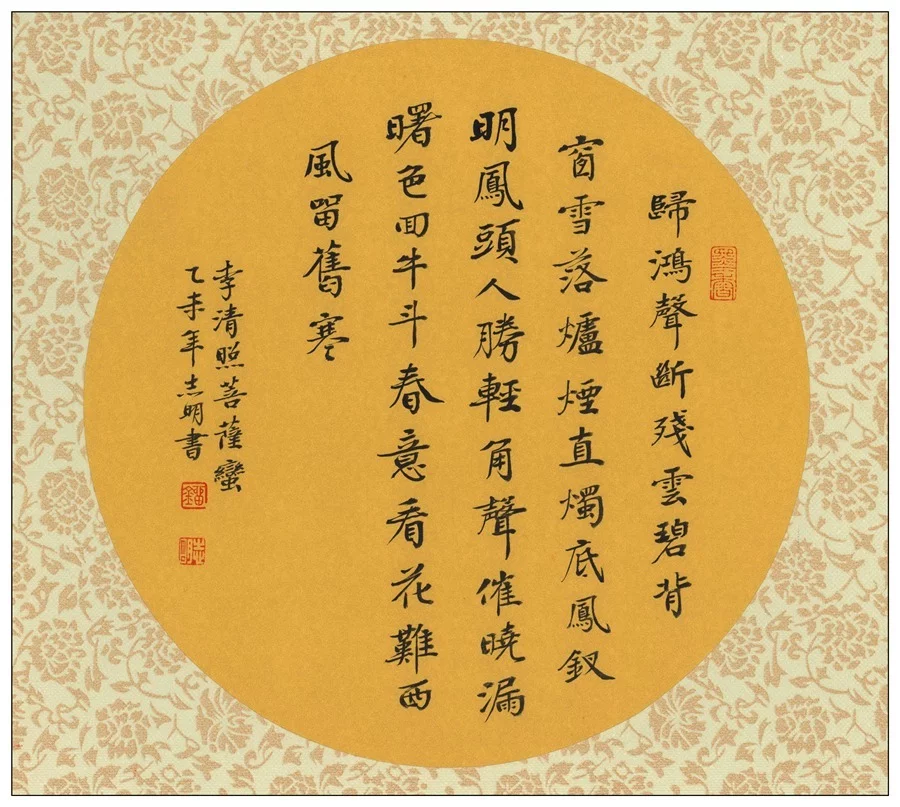 歸鴻聲斷殘雲碧背
窗雪落爐煙直燭底鳳釵
明鳳頭人勝輕角聲催曉漏
曙色回牛斗春意看花難西
風留舊寒
李清照菩薩蠻
乙未年志明書
志明